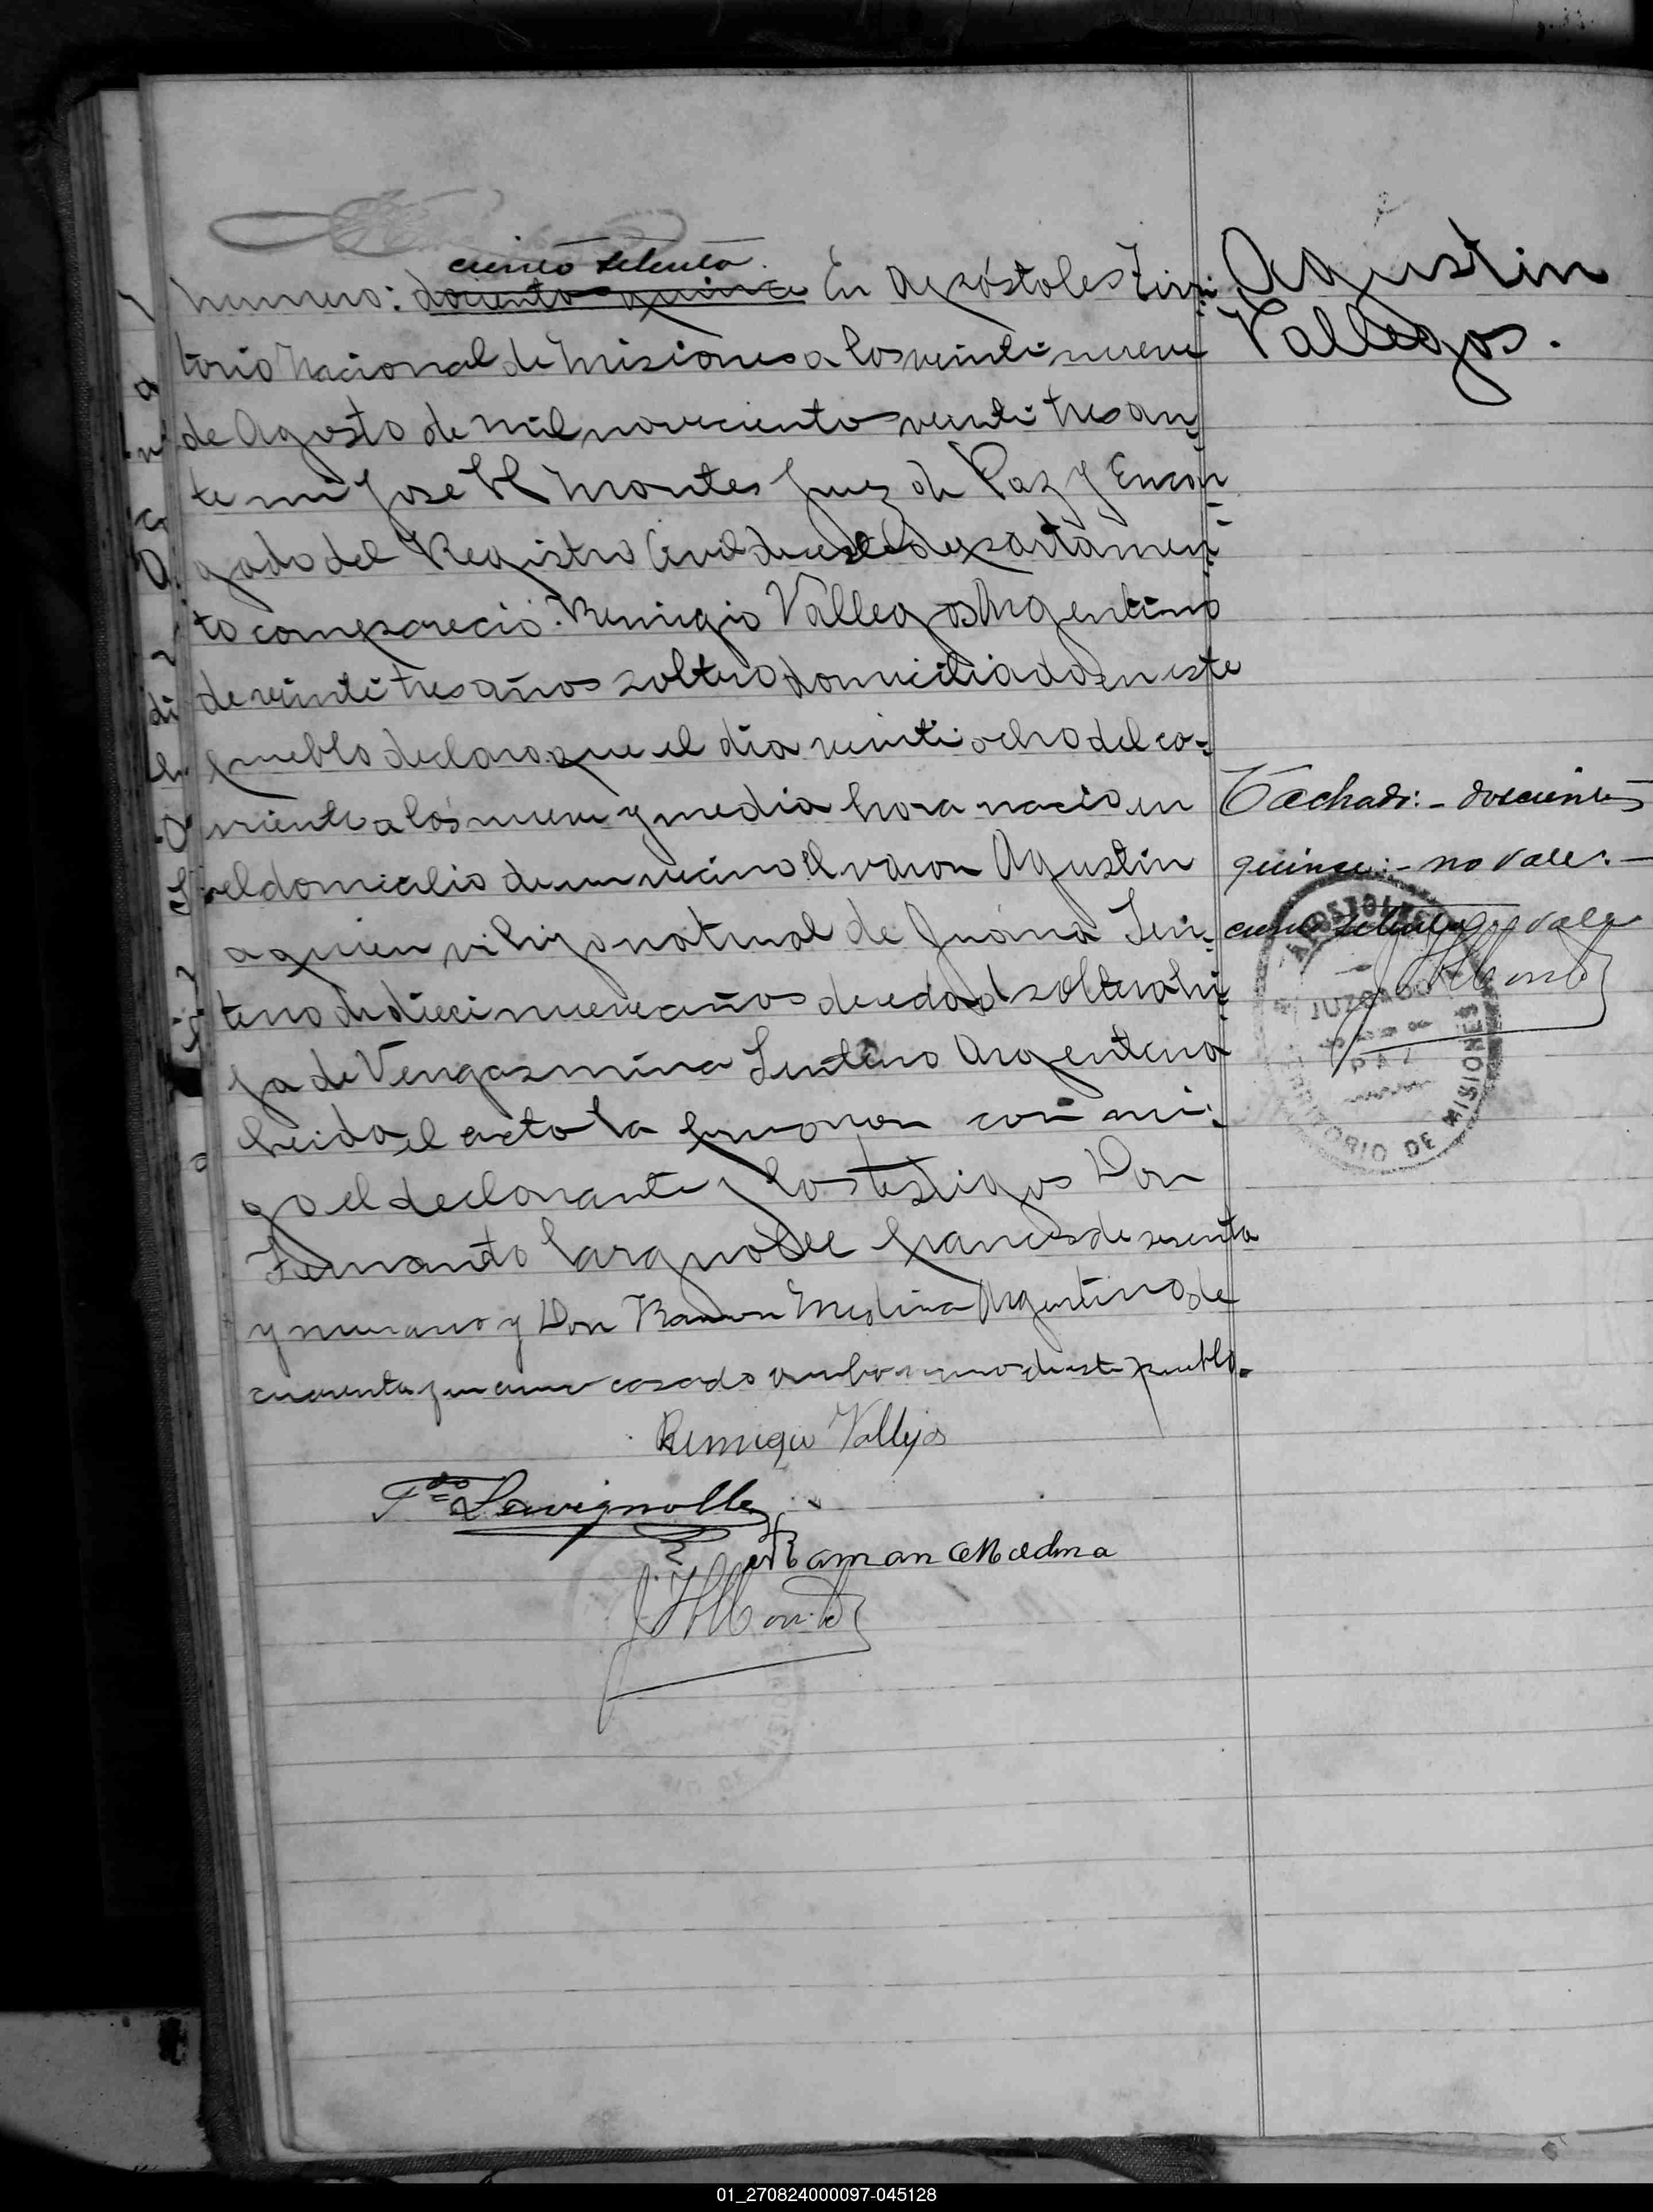 ciento setenta
Numero: dociento quince En Apóstoles Terri-
torio Nacional de Misiones a los veinti nueve
de Agosto de mil noveciento veinti tres an-
te mi Jose H Montes Juez de Paz y Encar-
gado del Registro Civil de este departamen-
to comparecio: Remigio Vallegos Argentino
de veinti tres años soltero domiciliado en este
pueblo declaro que el dia veinti ocho del co-
rriente a las nueve y media hora nacio en
el domicilio de un vecino el varon Agustin
a quien vi hijo natural de Juana Sen-
teno de dieci nueve años de edad soltera hi-
ja de Vengasmina Senteno Argentina
Leido el acto la firmaron con mi-
go el declarante y los testigos Don
Fernando Lavignolle frances de sesenta
y Don Ramon Medina Argentino de
cuarenta casado ambos de este pueblo.
Remigio Vallejos
Fdo Lavignolle
Raman Medina
JHMontes
Agustin
Vallegos.
Tachado:- doscientos
quince:- no vale.-
ciento setenta vale
JHMontes
APOSTOLES
JUZGADO
DE
PAZ
TERRITORIO DE MISIONES
01_270824000097-045128